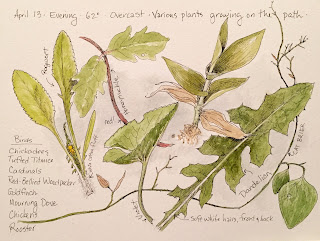 April 13 · Evening 62° Overcast · Various plants growing on the path ·
Ragwort
red
Honeysuckle
Cat Briar
Dandelion
Soft white hairs, front & back
Birds
Chickadees
Tufted Titmouse
Cardinals
Red-Bellied Woodpecker
Goldfinch
Mourning Dove
Chicken
Rooster